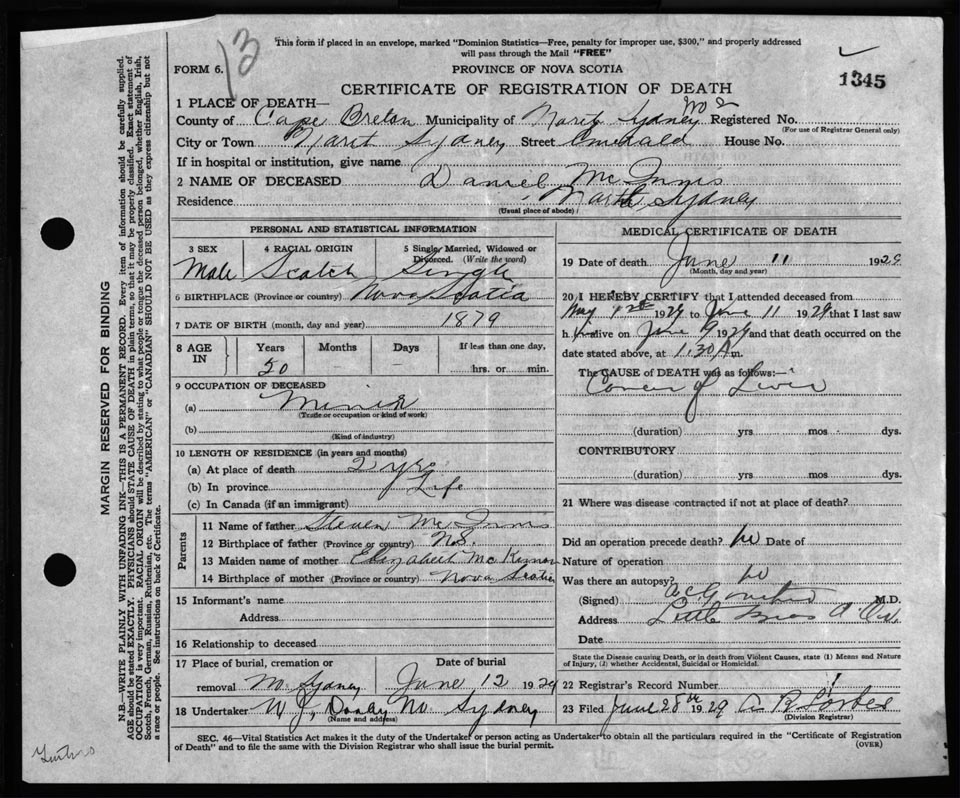 13
This form if placed in an envelope, marked "Dominion Statistics—Free, penalty for improper use, $300," and properly addressed
will pass through the Mail "FREE"
FORM 6.
PROVINCE OF NOVA SCOTIA
1345
CERTIFICATE OF REGISTRATION OF DEATH
1 PLACE OF DEATH—
County of Cape Breton Municipality of North Sydney No 2 Registered No.
(For use of Registrar General only)
City or Town North Sydney Street Emerald House No.
If in hospital or institution, give name
2 NAME OF DECEASED Daniel McInnis
Residence North Sydney
(Usual place of abode)
PERSONAL AND STATISTICAL INFORMATION
3 SEX 4 RACIAL ORIGIN 5 Single, Married, Widowed or Divorced. (Write the word)
Male Scotch Single
6 BIRTHPLACE (Province or country) Nova Scotia
7 DATE OF BIRTH (month, day and year) 1879
8 AGE IN Years Months Days If less than one day,
50 hrs. or min.
9 OCCUPATION OF DECEASED
(a) Miner
(Trade or occupation or kind of work)
(b)
(Kind of industry)
10 LENGTH OF RESIDENCE (in years and months)
(a) At place of death 2 yrs
(b) In province Life
(c) In Canada (if an immigrant)
Parents
11 Name of father Steven McInnis
12 Birthplace of father (Province or country) N.S.
13 Maiden name of mother Elizabeth McKinnon
14 Birthplace of mother (Province or country) Nova Scotia
15 Informant's name
Address
16 Relationship to deceased
17 Place of burial, cremation or removal N. Sydney
Date of burial June 12 1929
18 Undertaker W J, No. Sydney
(Name and address)
MEDICAL CERTIFICATE OF DEATH
19 Date of death June 11 1929
(Month, day and year)
20 I HEREBY CERTIFY that I attended deceased from
May 1929 to June 11 1929 that I last saw
h im alive on June 9 1929 and that death occurred on the
date stated above, at 1.30 A m.
The CAUSE OF DEATH was as follows:—
Cancer of Liver
(duration) yrs mos dys.
CONTRIBUTORY
(duration) yrs. mos. dys.
21 Where was disease contracted if not at place of death?
Did an operation precede death? No Date of
Nature of operation
Was there an autopsy? No
(Signed) M.D.
Address Little Bras d'Or
Date
State the Disease causing Death, or in death from Violent Causes, state (1) Means and Nature
of Injury, (2) whether Accidental, Suicidal or Homicidal.
22 Registrar's Record Number
23 Filed June 28th 1929 A R Forbes
(Division Registrar)
SEC. 46—Vital Statistics Act makes it the duty of the Undertaker or person acting as Undertaker to obtain all the particulars required in the "Certificate of Registration
of Death" and to file the same with the Division Registrar who shall issue the burial permit.
(OVER)
MARGIN RESERVED FOR BINDING
N.B.—WRITE PLAINLY WITH UNFADING INK—THIS IS A PERMANENT RECORD. Every item of information should be carefully supplied.
AGE should be stated EXACTLY. PHYSICIANS should STATE CAUSE OF DEATH in plain terms, so that it may be properly classified. Exact statement of
OCCUPATION is very important. RACIAL ORIGIN will be described by stating to what people or tongue the deceased person belonged, whether English, Irish,
Scotch, French, German, Russian, Ruthenian, etc. The terms "AMERICAN" or "CANADIAN" SHOULD NOT BE USED as they express citizenship but not
a race or people. See instructions on back of Certificate.